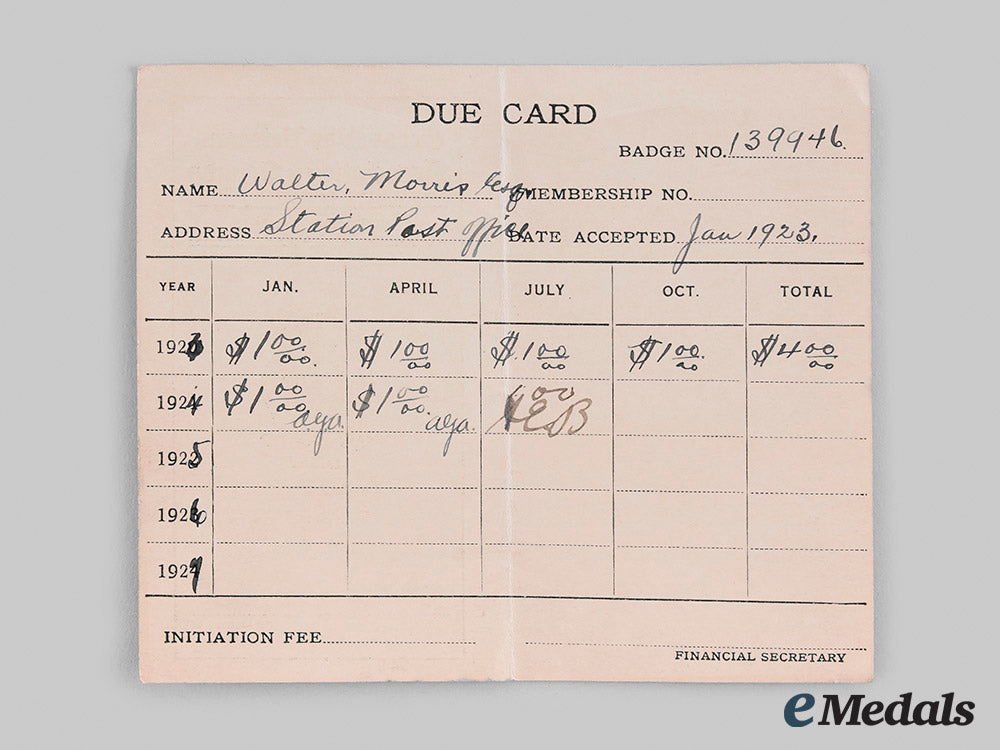 DUE CARD
BADGE NO. 139946.
NAME Walter, Morris Esq. MEMBERSHIP NO.
ADDRESS Station Post Office DATE ACCEPTED Jan 1923.
YEAR JAN. APRIL JULY OCT. TOTAL
1923 $1 00/00. $1 00/00 $1 00/00 $1 00/00. $4 00/00
1924 $1 00/00. $1 00/00. 1.00
1925
1926
1927
INITIATION FEE
FINANCIAL SECRETARY
eMedals